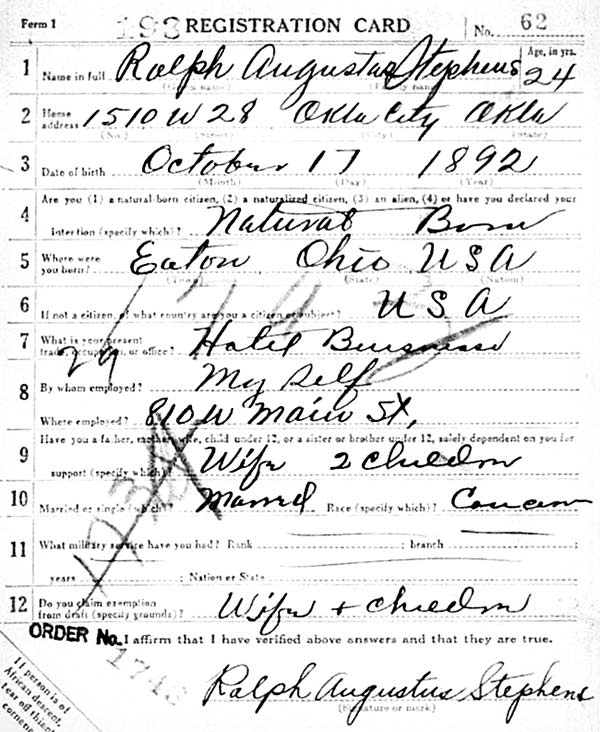 Form 1 193 REGISTRATION CARD No. 62
1 Name in full Ralph Augustus Stephens Age, in yrs. 24
(Given name) (Family name)
2 Home address 1510 W 28 Okla City Okla
(No.) (Street) (City) (State)
3 Date of birth October 17 1892
(Month) (Day) (Year)
Are you (1) a natural-born citizen, (2) a naturalized citizen, (3) an alien, (4) or have you declared your
4 intention (specify which)? Natural Born
5 Where were you born? Eaton Ohio U S A
(Town) (State) (Nation)
6 If not a citizen, of what country are you a citizen or subject? U S A
7 What is your present trade, occupation, or office? Hotel Buisness
29
8 By whom employed? My Self
Where employed? 810 W Main St,
Have you a father, mother, wife, child under 12, or a sister or brother under 12, solely dependent on you for
9 support (specify which)? Wife 2 children
10 Married or single (which)? Married Race (specify which)?
11 What military service have you had? Rank ; branch
years ; Nation or State
12 Do you claim exemption from draft (specify grounds)? Wife + children
ORDER No. I affirm that I have verified above answers and that they are true.
If person is of
African descent,
tear off this
corner
Ralph Augustus Stephens
(Signature or mark)